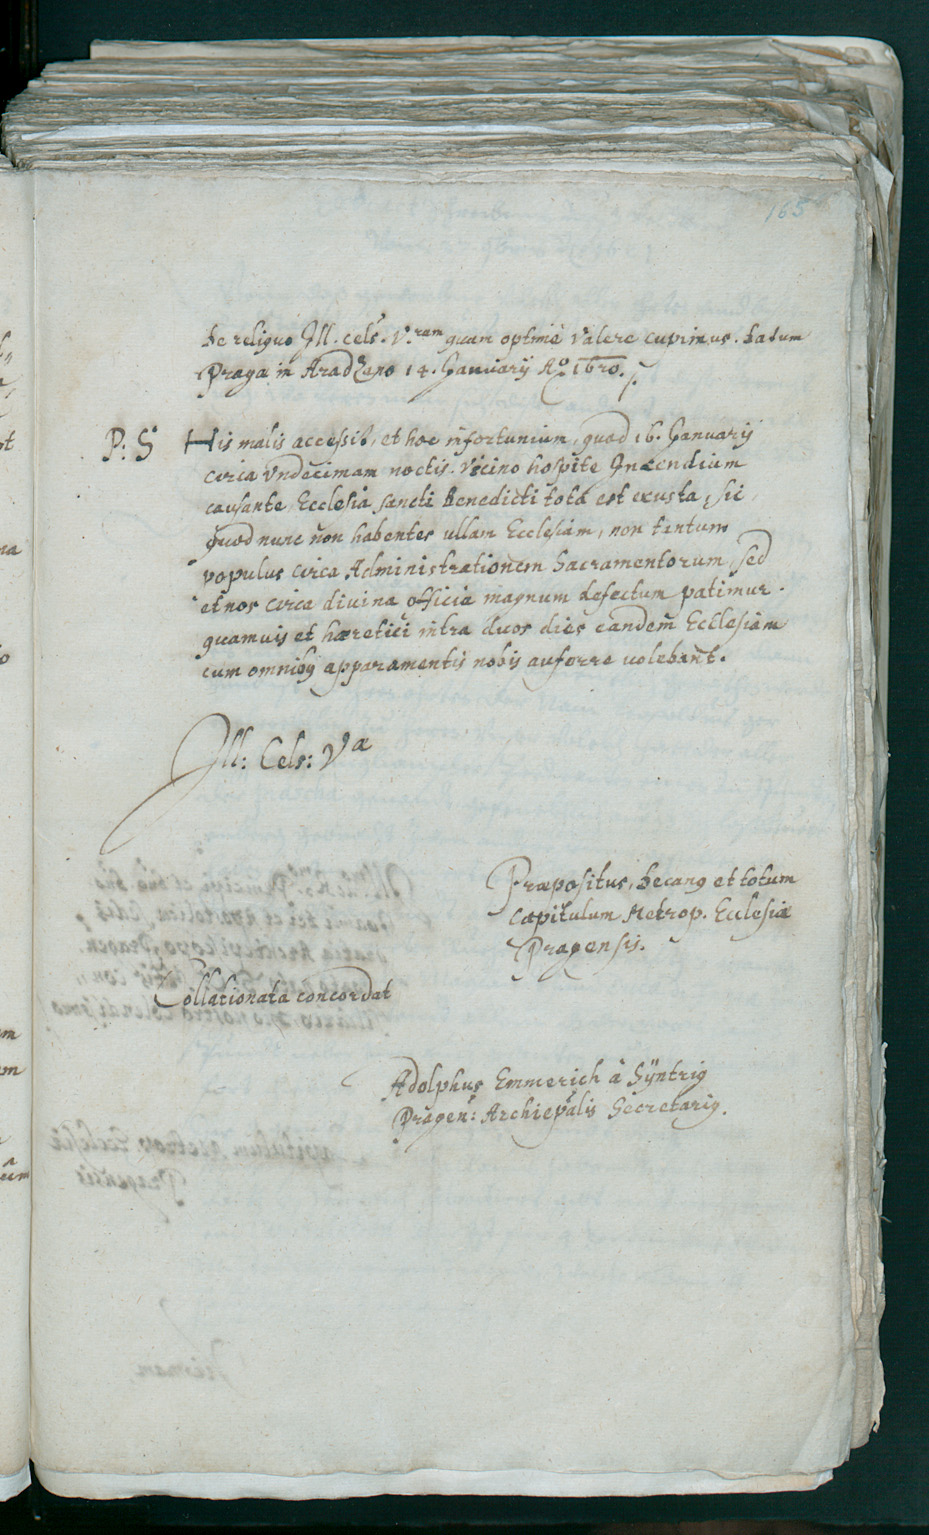 165
De reliquo Ill. cels. V.ram quam optimè valere cupimus. Datum
Pragæ in Aradzeno 14. Januarij Aº 1620.
P: S. His malis accessit, et hoc infortunium, quod 16. Januarij
circa vndecimam noctis. vicino hospite Incendium
causante, Ecclesia sancti Benedicti tota est exusta, sic
quod nunc non habentes ullam Ecclesiam, non tantum
populus circa Administrationem Sacramentorum, sed
et nos circa diuina officia magnum defectum patimur.
quamuis et hæretici intra duos dies eandem Ecclesiam
cum omnibꝫ apparamentis nobis auferre uolebant.
Ill: Cels: Væ
Præpositus, Decanꝰ et totum
Capitulum Metrop. Ecclesiæ
Pragensis.
Collationata concordat
Adolphus Emmerich à Sÿntrig
Pragen: Archiepâlis Secretariꝰ.